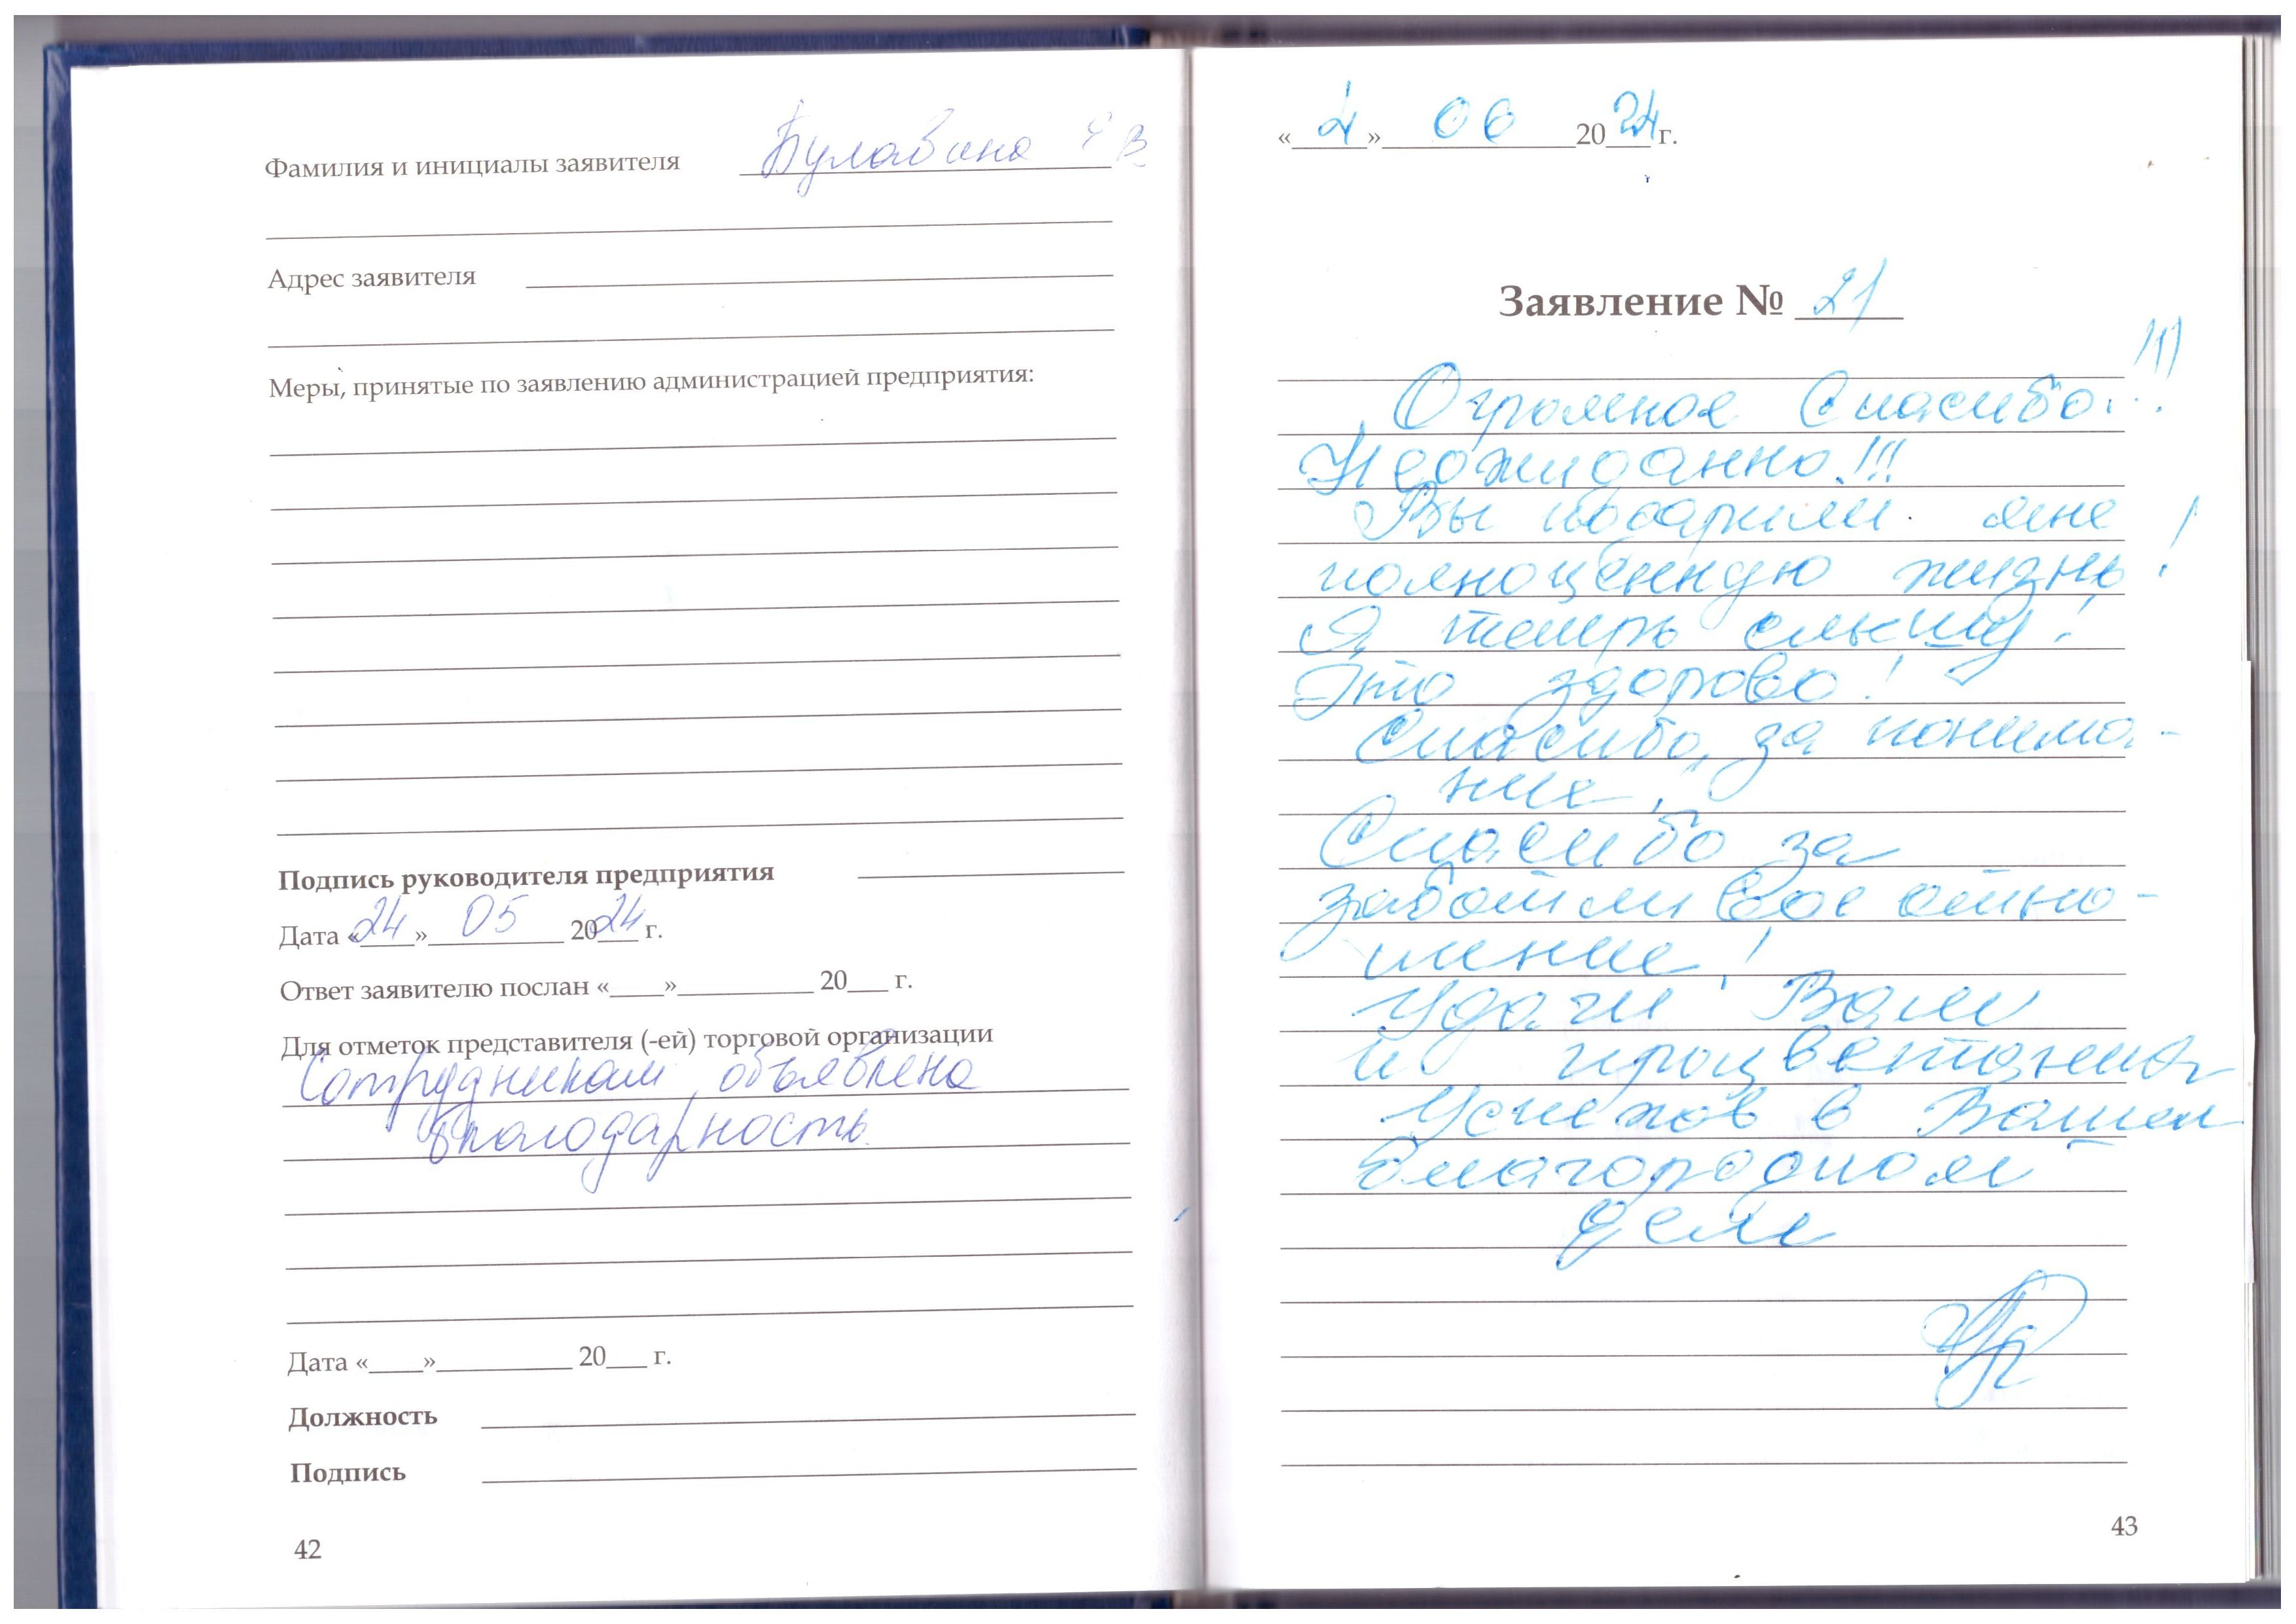 Фамилия и инициалы заявителя Булавина Е В
Адрес заявителя
Меры, принятые по заявлению администрацией предприятия:
Подпись руководителя предприятия
Дата «24» 05 2024 г.
Ответ заявителю послан «____»__________ 20___ г.
Для отметок представителя (-ей) торговой организации
Сотрудникам объявлена
благодарность
Дата «____»__________ 20___ г.
Должность
Подпись
42
« » 06 2024 г.
Заявление № 21
Огромное Спасибо!!!
Неожиданно!!!
Вы подарили мне
полноценную жизнь!
Я теперь слышу!
Это здорово!
Спасибо, за понима-
ние.
Спасибо за
заботливое отно-
шение!
Удачи Вам
и процветания
Успехов в Вашем
благородном
деле
43